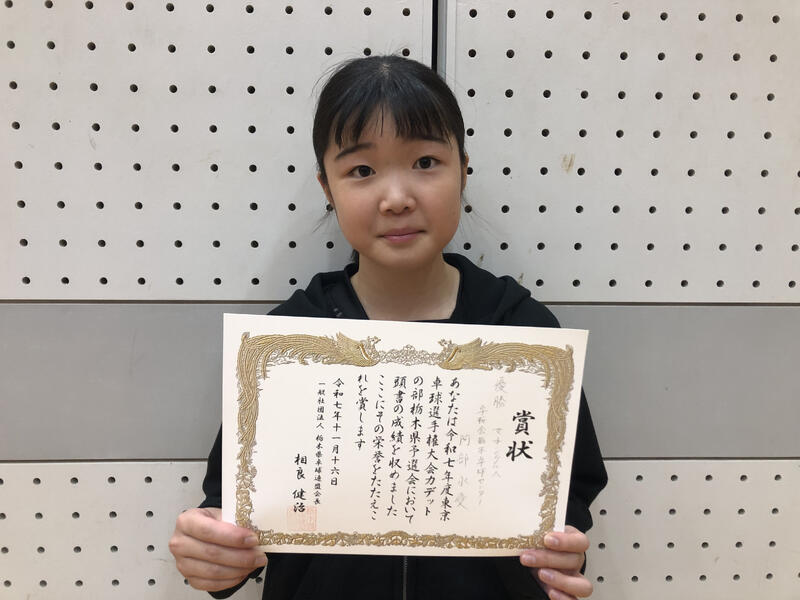 賞状
優勝
阿部
あなたは令和七年度東京
卓球選手権大会カデット
の部栃木県予選会において
頭書の成績を収めました
ここにその栄誉をたたえこ
れを賞します
令和七年十一月十六日
一般社団法人 栃木県卓球連盟会長
相良 健治